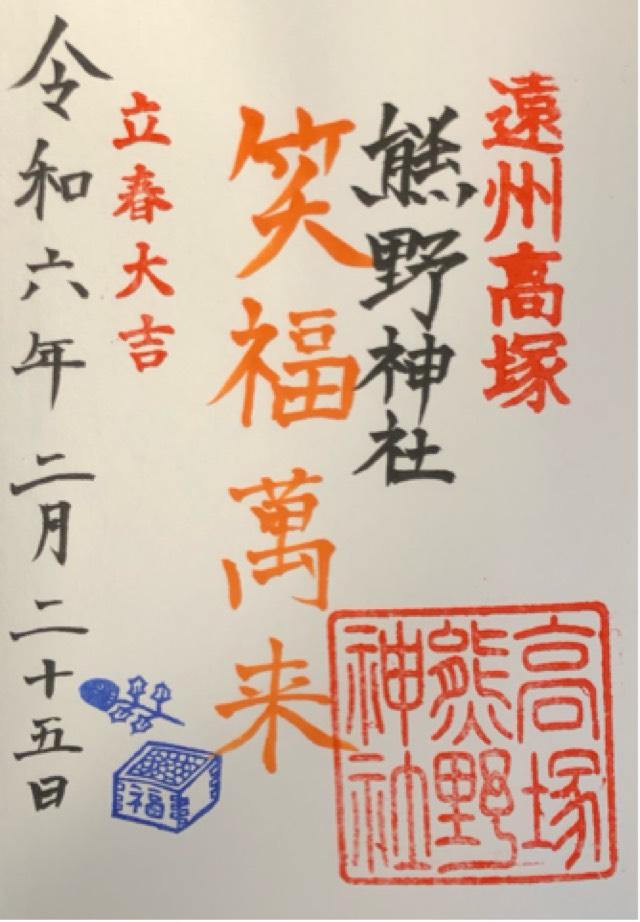 遠州高塚
熊野神社
笑福萬来
立春大吉
令和六年二月二十五日
高塚
熊野
神社
福